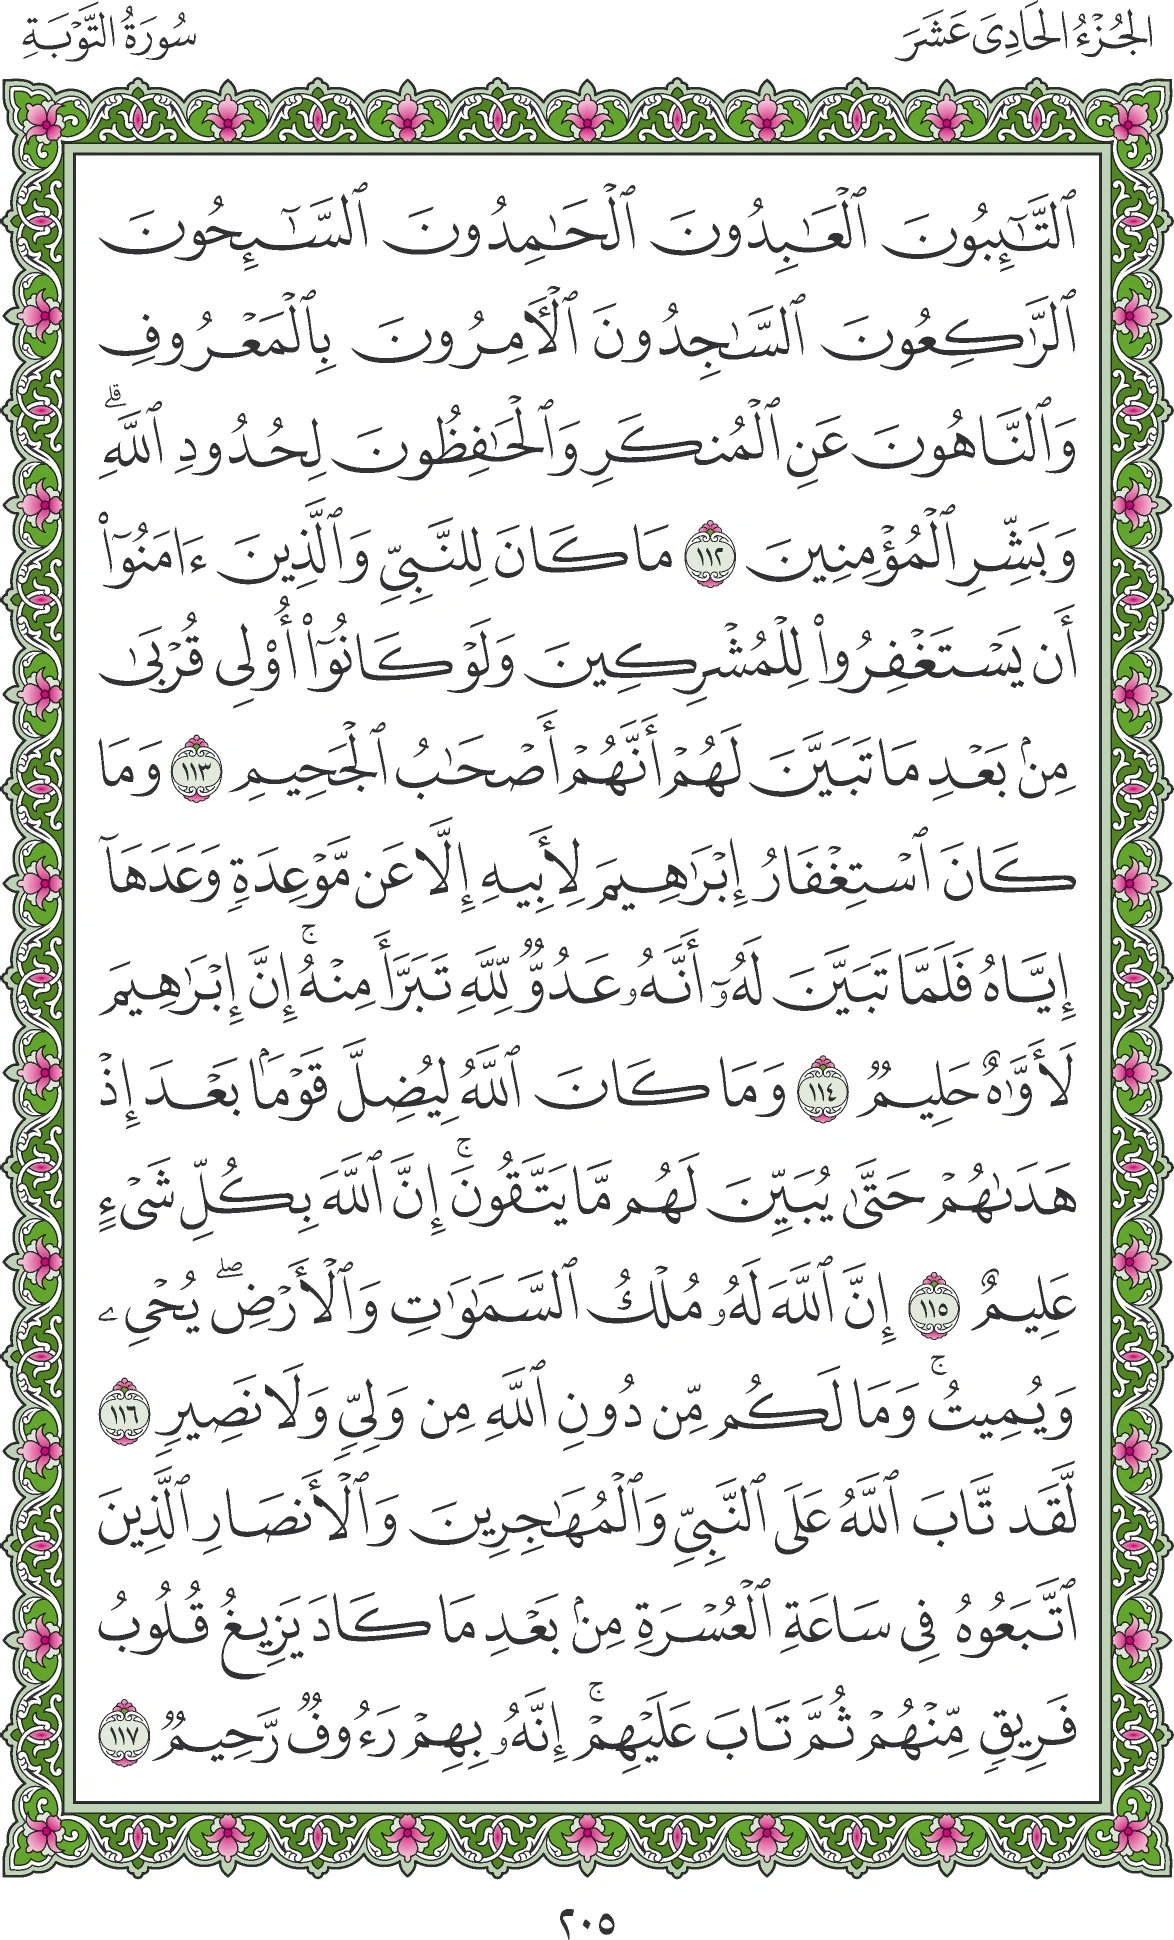 الجُزْءُ الحَادِىَ عَشَرَ
سُورَةُ التَّوْبَةِ
ٱلتَّٰٓئِبُونَ ٱلْعَٰبِدُونَ ٱلْحَٰمِدُونَ ٱلسَّٰٓئِحُونَ
ٱلرَّٰكِعُونَ ٱلسَّٰجِدُونَ ٱلْءَامِرُونَ بِٱلْمَعْرُوفِ
وَٱلنَّاهُونَ عَنِ ٱلْمُنكَرِ وَٱلْحَٰفِظُونَ لِحُدُودِ ٱللَّهِۗ
وَبَشِّرِ ٱلْمُؤْمِنِينَ ١١٢ مَا كَانَ لِلنَّبِىِّ وَٱلَّذِينَ ءَامَنُوٓا۟
أَن يَسْتَغْفِرُوا۟ لِلْمُشْرِكِينَ وَلَوْ كَانُوٓا۟ أُو۟لِى قُرْبَىٰ
مِنۢ بَعْدِ مَا تَبَيَّنَ لَهُمْ أَنَّهُمْ أَصْحَٰبُ ٱلْجَحِيمِ ١١٣ وَمَا
كَانَ ٱسْتِغْفَارُ إِبْرَٰهِيمَ لِأَبِيهِ إِلَّا عَن مَّوْعِدَةٍ وَعَدَهَآ
إِيَّاهُ فَلَمَّا تَبَيَّنَ لَهُۥٓ أَنَّهُۥ عَدُوٌّ لِّلَّهِ تَبَرَّأَ مِنْهُۚ إِنَّ إِبْرَٰهِيمَ
لَأَوَّٰهٌ حَلِيمٌ ١١٤ وَمَا كَانَ ٱللَّهُ لِيُضِلَّ قَوْمًۢا بَعْدَ إِذْ
هَدَىٰهُمْ حَتَّىٰ يُبَيِّنَ لَهُم مَّا يَتَّقُونَۚ إِنَّ ٱللَّهَ بِكُلِّ شَىْءٍ
عَلِيمٌ ١١٥ إِنَّ ٱللَّهَ لَهُۥ مُلْكُ ٱلسَّمَٰوَٰتِ وَٱلْأَرْضِۖ يُحْىِۦ
وَيُمِيتُۚ وَمَا لَكُم مِّن دُونِ ٱللَّهِ مِن وَلِىٍّ وَلَا نَصِيرٍ ١١٦
لَّقَد تَّابَ ٱللَّهُ عَلَى ٱلنَّبِىِّ وَٱلْمُهَٰجِرِينَ وَٱلْأَنصَارِ ٱلَّذِينَ
ٱتَّبَعُوهُ فِى سَاعَةِ ٱلْعُسْرَةِ مِنۢ بَعْدِ مَا كَادَ يَزِيغُ قُلُوبُ
فَرِيقٍ مِّنْهُمْ ثُمَّ تَابَ عَلَيْهِمْۚ إِنَّهُۥ بِهِمْ رَءُوفٌ رَّحِيمٌ ١١٧
٢٠٥